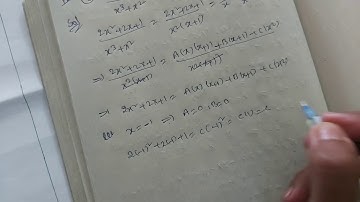 x³+x²
Sol 2x²+2x+1 / x³+x² = 2x²+2x+1 / x²(x+1) =
⇒ 2x²+2x+1 / x²(x+1) = A(x)(x+1)+B(x+1)+C(x²) / x²(x+1)
⇒ 2x²+2x+1 = A(x)(x+1)+B(x+1)+C(x²)
x=-1 ⇒ A=0, B=0
2(-1)²+2(-1)+1 = C(-1)² = C(1) = C